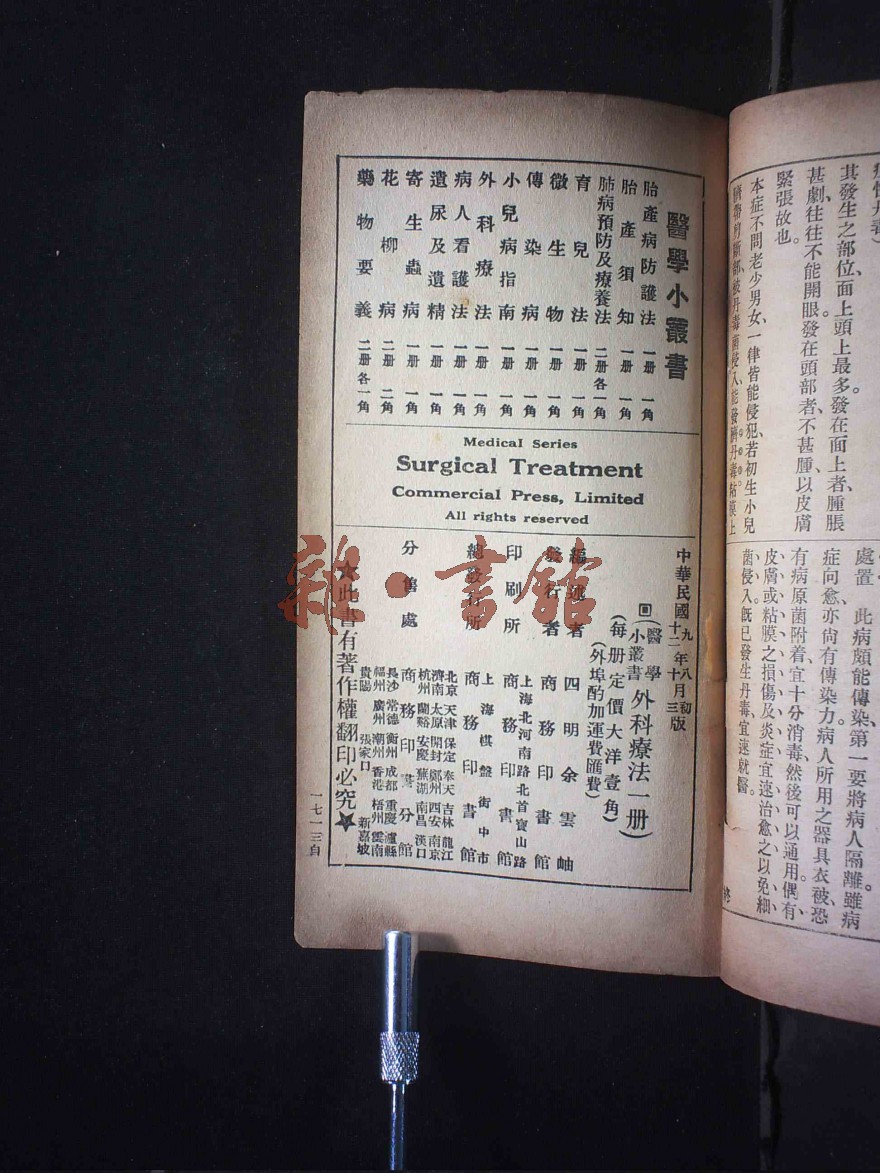 其發生之部位、面上頭上最多。發在面上者、腫脹
甚劇、往往不能開眼。發在頭部者、不甚腫、以皮膚
緊張故也。
本症不問老少男女、一律皆能侵犯、若初生小兒
處置　此病頗能傳染、第一要將病人隔離。雖病
症向愈、亦尙有傳染力、病人所用之器具衣被、恐
有病原菌附着、宜十分消毒、然後可以通用。偶有
皮膚或粘膜之損傷及炎症、宜速治愈之、以免細
菌侵入。旣已發生丹毒、宜速就醫。
醫學小叢書
胎產病防護法　一册　一角
胎產須知　一册　一角
肺病預防及療養法　二册各一角
育兒法　一册　一角
微生物　一册　一角
傳染病　一册　一角
小兒病指南　一册　一角
外科療法　一册　一角
病人看護法　一册　一角
遺尿及遺精　一册　一角
寄生蟲病　一册　一角
花柳病　二册　二角
藥物要義　二册各一角
Medical Series
Surgical Treatment
Commercial Press, Limited
All rights reserved
中華民國九年八月初版
十二年十月三版
(醫學小叢書外科療法一册)
(每册定價大洋壹角)
(外埠酌加運費匯費)
編述者　四明余雲岫
發行者　商務印書館
印刷所　上海北河南路北首寶山路
商務印書館
總發行所　上海棋盤街中市
商務印書館
分售處　北京　天津　保定　奉天　吉林　龍江
濟南　太原　開封　鄭州　西安　南京
杭州　蘭谿　安慶　蕪湖　南昌　漢口
商務印書分館
長沙　常德　衡州　成都　重慶　瀘縣
福州　廣州　潮州　香港　梧州　雲南
貴陽　張家口　新嘉坡
★此書有著作權翻印必究★
一七一三自
雜·書館